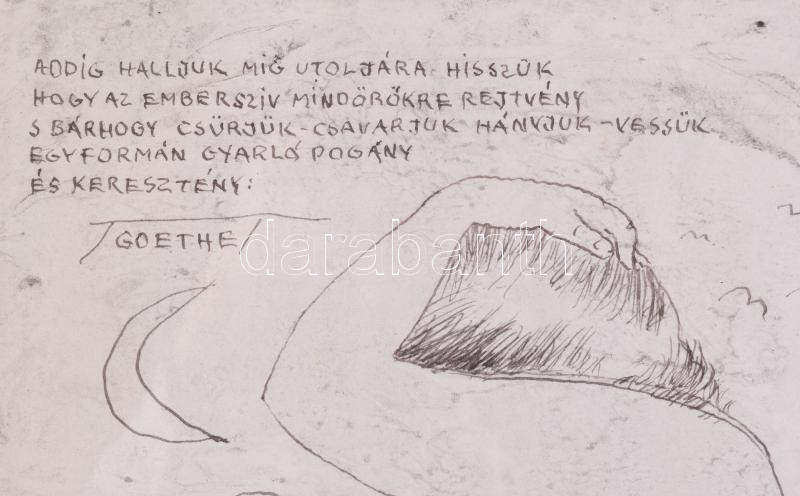 ADDIG HALLJUK MIG UTOLJÁRA HISSZÜK
HOGY AZ EMBERSZIV MINDÖRÖKRE REJTVÉNY
S BÁRHOGY CSÜRJÜK-CSAVARJUK HÁNYJUK-VESSÜK
EGYFORMÁN GYARLÓ POGÁNY
ÉS KERESZTÉNY:
GOETHE
darabanth